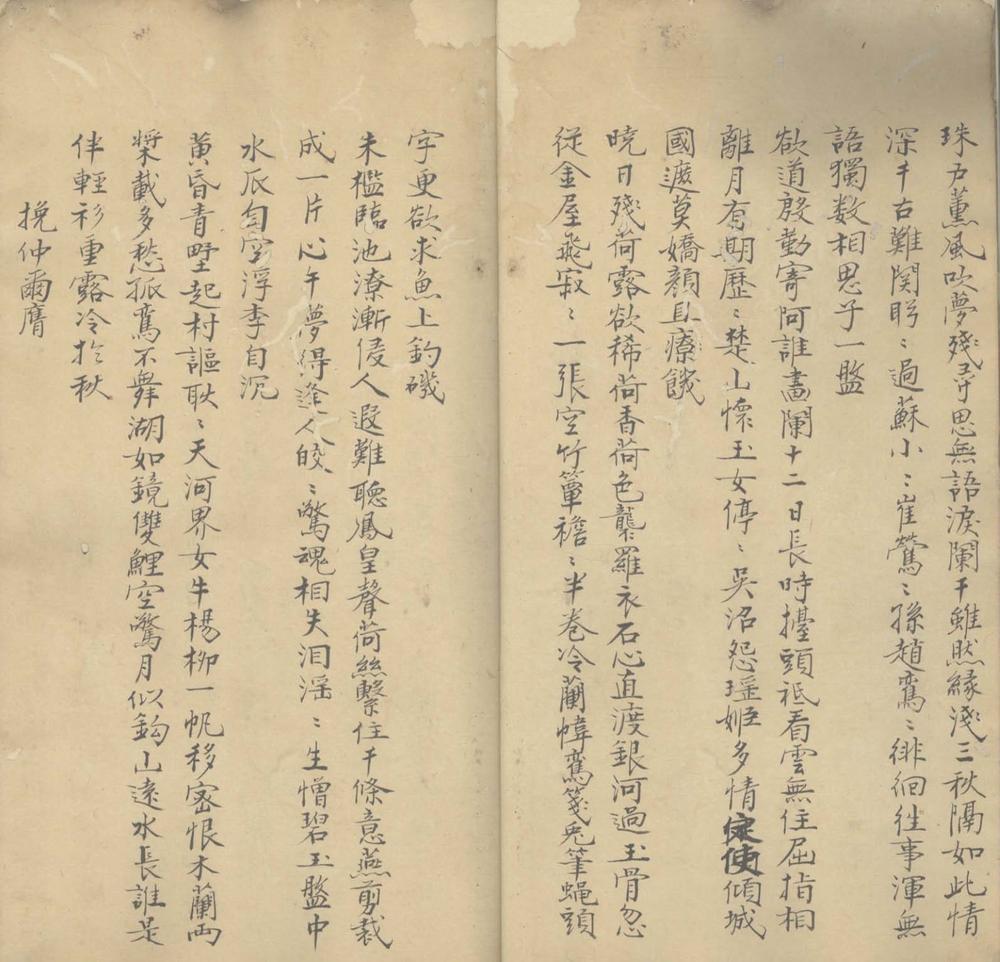 珠戶薰風吹夢殘尋思無語淚闌干雖然緣淺三秋隔如此情
深千古難関盼〻過蘇小〻崔鶯〻孫趙鸞〻徘徊往事渾無
語獨数相思子一盤
欲道殷勤寄阿誰畵闌十二日長時擡頭祗看雲無住屈指相
離月有期歷〻楚山懷玉女停〻吳沼怨瑶姬多情定使傾城
國遮莫嬌顏且療饑
曉日殘荷露欲稀荷香荷色襲羅衣石心直渡銀河過玉骨忽
従金屋飛寂〻一張空竹簟襜〻半卷冷蘭幃鸞箋兎筆蝇頭
字更欲求魚上釣磯
朱檻臨池潦漸侵人遐難聴鳳皇聲荷絲繫住千條意燕剪裁
成一片心午夢得逢人皎〻驚魂相失泪滛〻生憎碧玉盤中
水瓜自空浮李自沉
黄昏青野起村謳耿〻天河界女牛楊柳一帆移宻恨木蘭兩
槳載多愁孤鸞不舞湖如鏡雙鯉空驚月似鈎山遠水長誰是
伴輕衫重露冷扵秋
挽仲爾膺